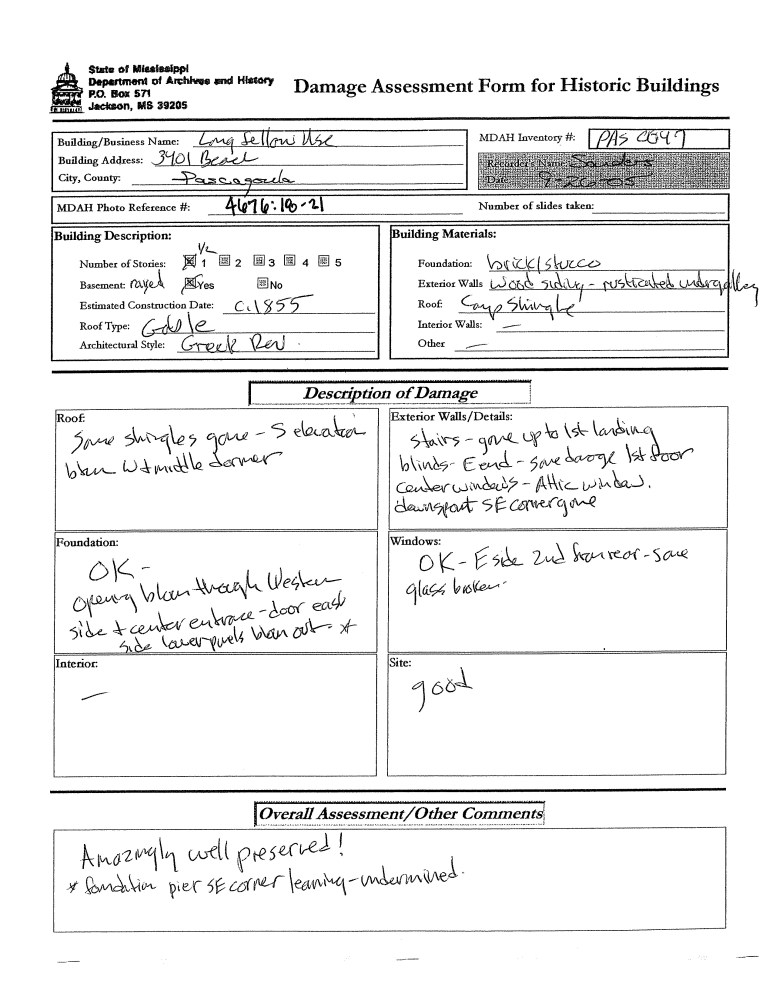 State of Mississippi
Department of Archives and History
P.O. Box 571
Jackson, MS 39205
Damage Assessment Form for Historic Buildings
Building/Business Name: Longfellow Hse
Building Address: 3401 Beach
City, County: Pascagoula
MDAH Inventory #: PAS 0047
Recorder's Name: Sanders
Date: 9-26-05
MDAH Photo Reference #: 4676:18-21
Number of slides taken:
Building Description:
1/2
Number of Stories: 1 2 3 4 5
Basement: raised Yes No
Estimated Construction Date: c.1855
Roof Type: Gable
Architectural Style: Greek Rev.
Building Materials:
Foundation: brick/stucco
Exterior Walls wood siding - rusticated undergallery
Roof: Comp Shingle
Interior Walls: —
Other —
Description of Damage
Roof:
Some shingles gone - S elevation
blown W + middle dormer
Exterior Walls/Details:
Stairs - gone up to 1st landing
blinds - E end - some damage 1st floor
center windows - Attic window.
downspout SE corner gone
Foundation:
OK -
opening blown through Western
side + center entrance - door east
side lower panels blown out - *
Windows:
OK - E side 2nd from rear - some
glass broken -
Interior:
—
Site:
good
Overall Assessment/Other Comments
Amazingly well preserved!
* foundation pier SE corner leaning - undermined.